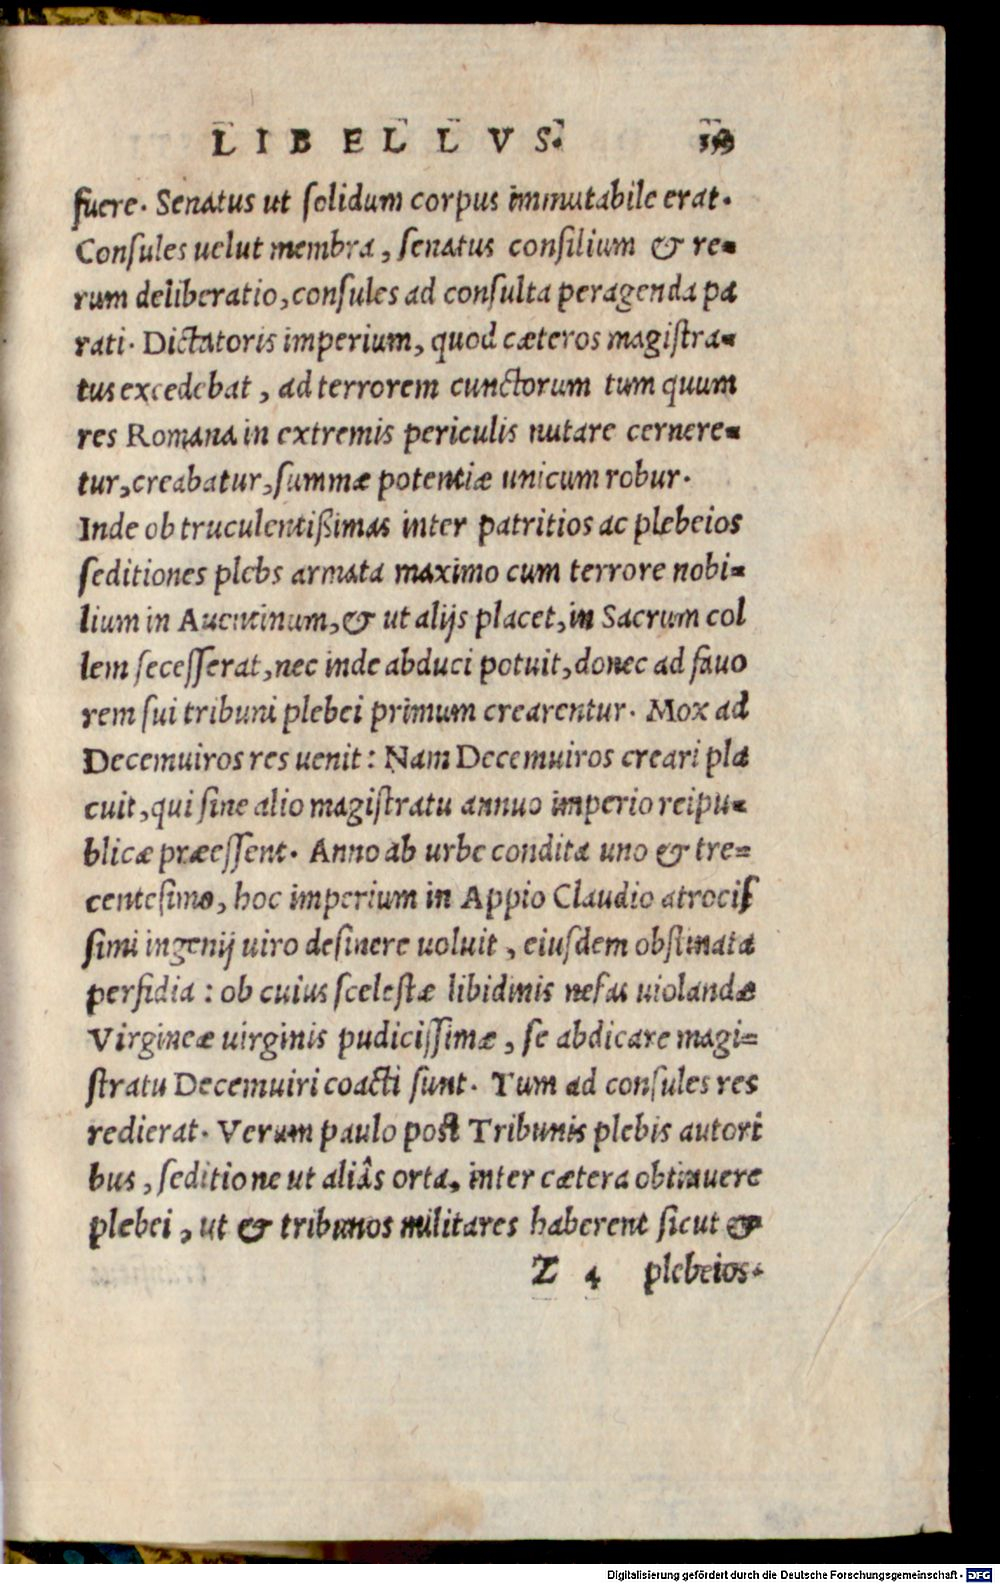 LIBELLVS.
fuere. Senatus ut ſolidum corpus immutabile erat.
Conſules uelut membra, ſenatus conſilium & re=
rum deliberatio, conſules ad conſulta peragenda pa
rati. Dictatoris imperium, quod cæteros magiſtra=
tus excedebat, ad terrorem cunctorum tum quum
res Romana in extremis periculis nutare cernere=
tur, creabatur, ſummæ potentiæ unicum robur.
Inde ob truculentißimas inter patritios ac plebeios
ſeditiones plebs armata maximo cum terrore nobi=
lium in Auentinum, & ut alijs placet, in Sacrum col
lem ſeceſſerat, nec inde abduci potuit, donec ad fauo
rem ſui tribuni plebei primum crearentur. Mox ad
Decemuiros res uenit: Nam Decemuiros creari pla
cuit, qui ſine alio magiſtratu annuo imperio reipu=
blicæ præeſſent. Anno ab urbe condita uno & tre=
centeſimo, hoc imperium in Appio Claudio atrociſ
ſimi ingenij uiro deſinere uoluit, eiuſdem obſtinata
perfidia: ob cuius ſceleſtæ libidinis nefas uiolandæ
Virgineæ uirginis pudiciſſimæ, ſe abdicare magi=
ſtratu Decemuiri coacti ſunt. Tum ad conſules res
redierat. Verum paulo poſt Tribunis plebis autori
bus, ſeditione ut aliâs orta, inter cætera obtinuere
plebei, ut & tribunos militares haberent ſicut &
Z 4 plebeios.
Digitalisierung gefördert durch die Deutsche Forschungsgemeinschaft - DFG